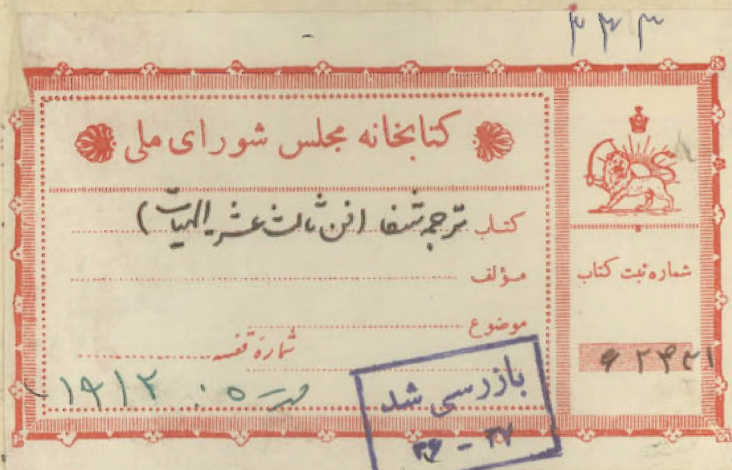 ۳۴۳
کتابخانه مجلس شورای ملی
کتاب ترجمه شفا (فن ثالث عشر الهیات)
مؤلف
موضوع
شماره قفسه
شماره ثبت کتاب
بازرسی شد
۳۶ - ۳۷